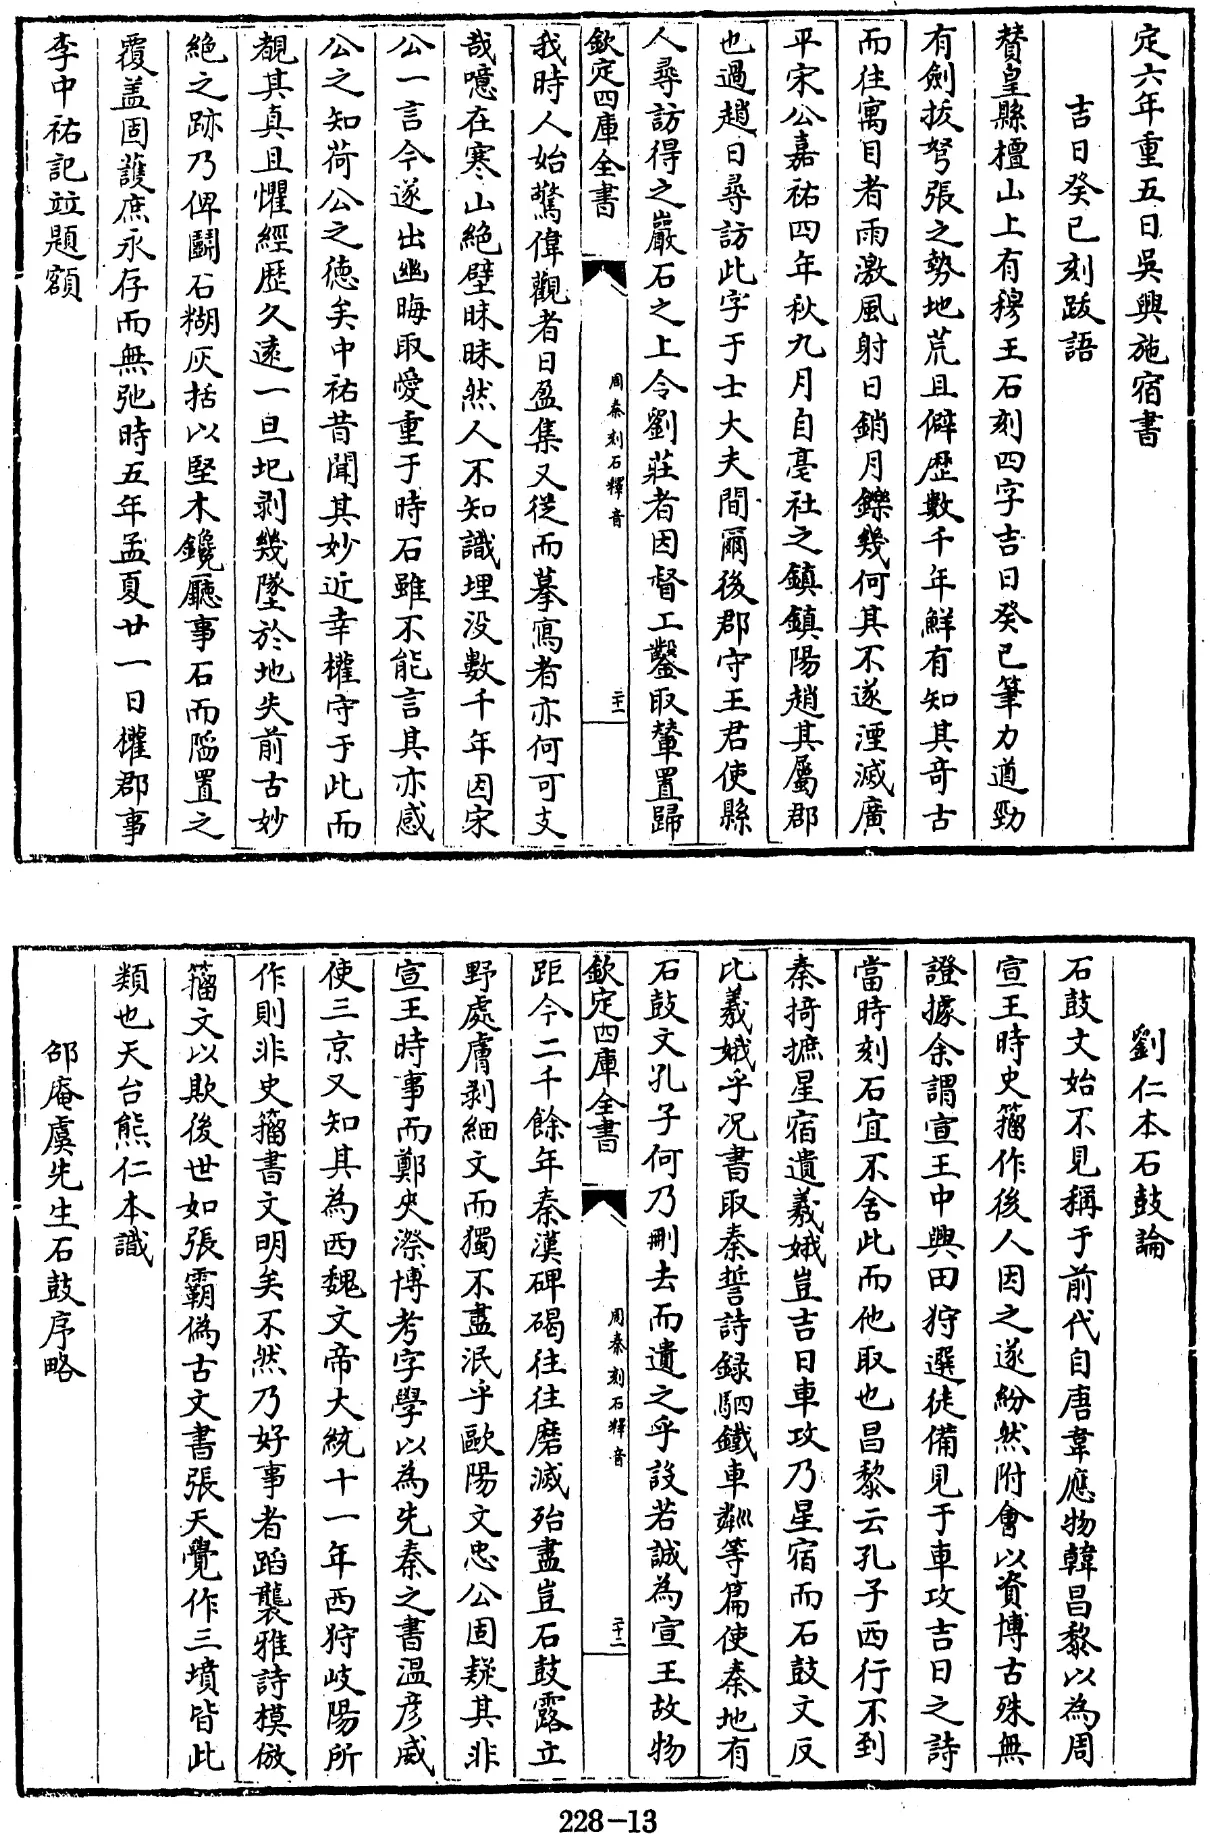 定六年重五日吳興施宿書
吉日癸巳刻跋語
賛皇縣檀山上有穆王石刻四字吉日癸巳筆力遒勁
有劍拔弩張之勢地荒且僻歷數千年鮮有知其奇古
而往寓目者雨激風射日銷月鑠幾何其不遂湮滅廣
平宋公嘉祐四年秋九月自亳社之鎮鎮陽趙其屬郡
也過趙日尋訪此字于士大夫間爾後郡守王君使縣
人尋訪得之巖石之上令劉莊者因督工鑿取輦置歸
欽定四庫全書
周秦刻石釋音
二十一
我時人始驚偉觀者日盈集又從而摹寫者亦何可支
哉噫在寒山絶壁昧昧然人不知識埋没數千年因宋
公一言今遂出幽晦取愛重于時石雖不能言其亦感
公之知荷公之徳矣中祐昔聞其妙近幸權守于此而
覩其真且懼經歴久遠一旦圮剥幾墜於地失前古妙
絶之跡乃俾鬭石糊灰括以堅木鑱廳事石而陷置之
覆盖固護庶永存而無弛時五年孟夏廿一日權郡事
李中祐記竝題額
劉仁本石鼓論
石鼓文始不見稱于前代自唐韋應物韓昌黎以為周
宣王時史籀作後人因之遂紛然附會以資博古殊無
證據余謂宣王中興田狩選徒備見于車攻吉日之詩
當時刻石宜不舍此而他取也昌黎云孔子西行不到
秦掎摭星宿遺羲娥豈吉日車攻乃星宿而石鼓文反
比羲娥乎况書取秦誓詩録駟鐵車鄰等篇使秦地有
石鼓文孔子何乃刪去而遺之乎設若誠為宣王故物
欽定四庫全書
周秦刻石釋音
二十二
距今二千餘年秦漢碑碣往往磨滅殆盡豈石鼓露立
野處膚剥細文而獨不盡泯乎歐陽文忠公固疑其非
宣王時事而鄭夾漈博考字學以為先秦之書温彦威
使三京又知其為西魏文帝大統十一年西狩岐陽所
作則非史籀書文明矣不然乃好事者蹈襲雅詩模倣
籀文以欺後世如張霸偽古文書張天覺作三墳皆此
類也天台熊仁本識
邵庵虞先生石鼓序略
228-13